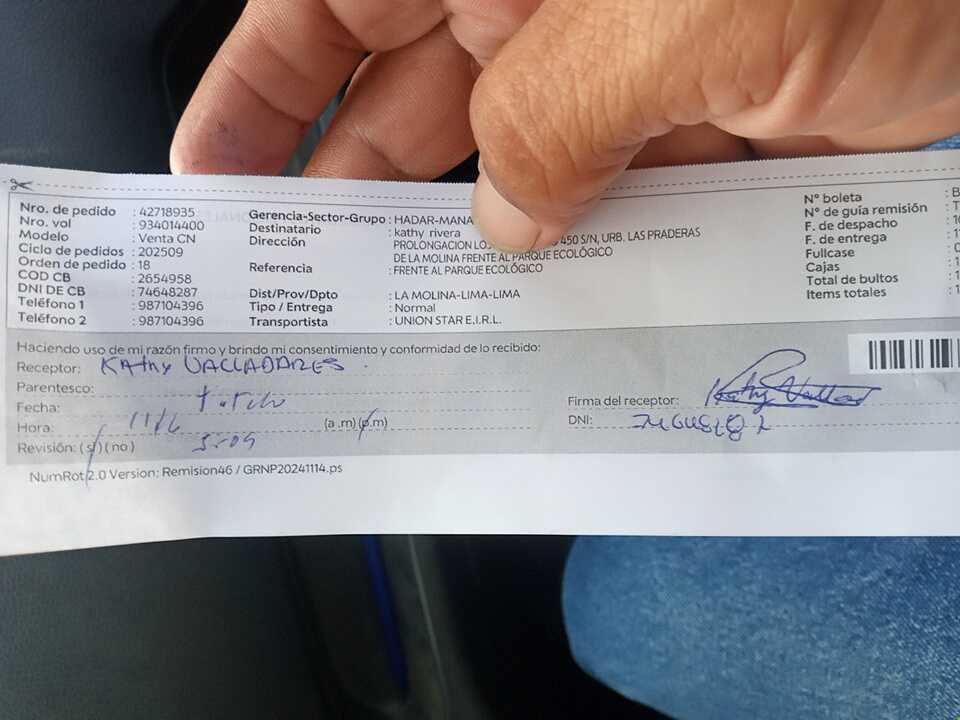 Nro. de pedido : 42718935
Nro. vol : 934014400
Modelo : Venta CN
Ciclo de pedidos : 202509
Orden de pedido : 18
COD CB : 2654958
DNI DE CB : 74648287
Teléfono 1 : 987104396
Teléfono 2 : 987104396
Gerencia-Sector-Grupo : HADAR-MANA
Destinatario : kathy rivera
Dirección : PROLONGACION 450 S/N, URB. LAS PRADERAS
DE LA MOLINA FRENTE AL PARQUE ECOLÓGICO
Referencia : FRENTE AL PARQUE ECOLÓGICO
Dist/Prov/Dpto : LA MOLINA-LIMA-LIMA
Tipo / Entrega : Normal
Transportista : UNION STAR E.I.R.L.
N° boleta :
N° de guía remisión :
F. de despacho :
F. de entrega :
Fullcase :
Cajas :
Total de bultos :
Items totales :
Haciendo uso de mi razón firmo y brindo mi consentimiento y conformidad de lo recibido:
Receptor: KAthy VALLADARES
Parentesco:
Fecha: 11/6
Hora: (a .m) (p.m)
Revisión: (si) (no)
Firma del receptor: Kathy
DNI:
NumRot 2.0 Version: Remision46 / GRNP20241114.ps